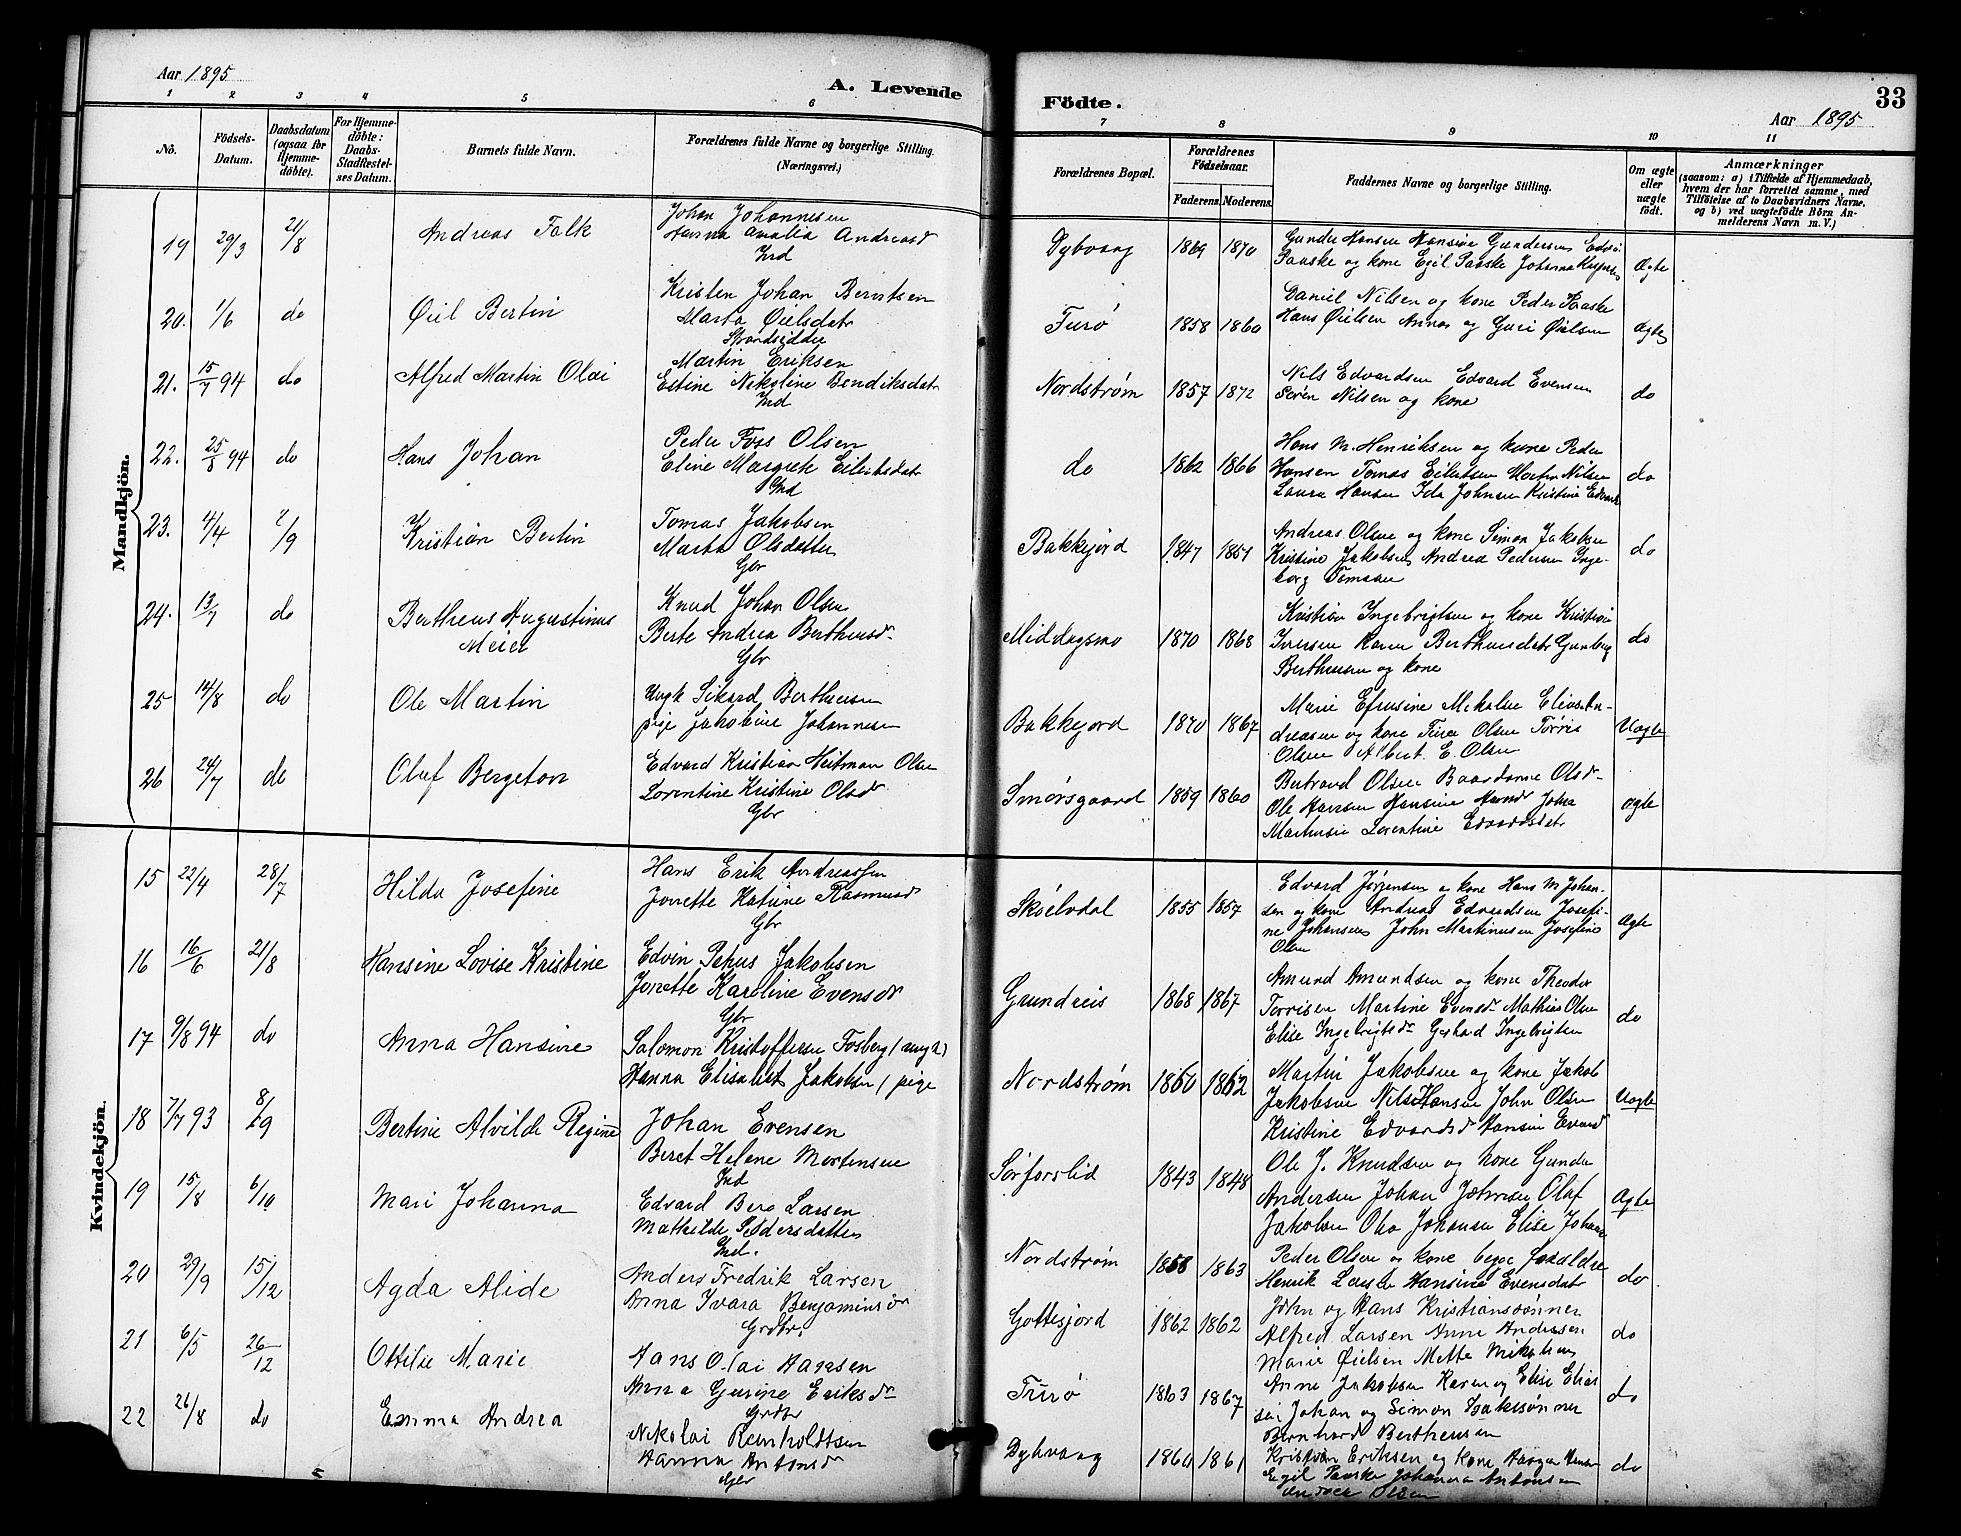 Aar 1895
A. Levende
1 2 3 4 5 6
No.
Födsels-
Datum.
Daabsdatum
(ogsaa for
Hjemme-
döbte).
For Hjemme-
döbte:
Daabs-
Stadfæstel-
ses Datum.
Barnets fulde Navn.
Forældrenes fulde Navne og borgerlige Stilling.
(Næringsvei.)
Mandkjön.
19 29/3 21/8 Andreas Falk
Johan Johannesen
Hanna Amalia Andreasd
Ind
20. 1/6 do Öiel Bertin
Kristen Johan Berntsen
Marta Öielsdatr
Strandsidder
21. 15/7 94 do Alfred Martin Olai
Martin Eriksen
Estine Nikoline Bendiksdat
Ind
22. 25/8 94 do Hans Johan
Peder Foss Olsen
Eline Margrete Eilertsdat
Ind
23. 4/4 2/9 Kristian Bertin
Tomas Jakobsen
Marta Olsdatter
Gbr
24. 13/7 do Bertheus Augustinus
Meier
Knud Johan Olsen
Berte Andrea Bertheusdr
Gbr
25 14/8 do Ole Martin
Ungk Sikard Bertheusen
pige Jakobine Johannesen
26 24/7 do Oluf Bergeton
Edvard Kristian Heitman Olsen
Lorentine Kristine Olsdr
Gbr
Kvindekjön.
15 22/4 28/7 Hilda Josefine
Hans Erik Andreassen
Jonette Katrine Rasmusdr
Gbr
16 16/6 21/8 Hansine Lovise Kristine
Edvin Petrus Jakobsen
Jonette Karoline Evensdr
Gbr
17 9/8 94 do Anna Hansine
Salomon Kristoffersen Fosberg (ungk)
Hanna Elisabet Jakobsen / pige
18 7/7 93 8/9 Bertine Alvilde Regine
Johan Evensen
Beret Helene Mortensen
Ind
19 15/8 6/10 Mari Johanna
Edvard Berg Larsen
Mathilde Pedersdatter
Ind.
20 29/9 15/12 Agda Alide
Anders Fredrik Larsen
Anna Ivara Benjaminsdr
Grdbr.
21 6/5 26/12 Ottilie Marie
Hans Olai Hansen
Anna Gurine Eriksdr
Grdbr
22 26/8 do Emma Andrea
Nikolai Reinholdtsen
Hanna Antonsd
Gbr
Födte.
33
Aar 1895
7 8 9 10 11
Forældrenes Bopæl.
Forældrenes
Födselsaar.
Faderens. Moderens.
Faddernes Navne og borgerlige Stilling.
Om ægte
eller
uægte
födt.
Anmærkninger
(saasom: a) i Tilfælde af Hjemmedaab,
hvem der har forrettet samme, med
Tilföielse af to Daabsvidners Navne,
og b) ved uægtefödte Börn An-
melderens Navn m. V.)
Dybvaag 1869 1870
Gunder Hansen Hansine Gundersen
Paaske og kone Egil Paaske Johanna
Ægte
Furö 1858 1860
Daniel Nilsen og kone Peder
Hans Öielsen Annas og Guri Öielsen
Ægte
Nordström 1857 1872
Nils Edvardsen Edvard Evensen
Sören Nilsen og kone
do
do 1862 1866
Hans M. Henriksen og kone Peder
Hansen Tomas Eilertsen Martin Nilsen
Laura Hansen Ida Johnsen Kristine
do
Bakkejord 1847 1851
Andreas Olsen og kone Simon Jakobsen
Kristine Jakobsen Andrea Pedersen Inge-
borg Tomasen
do
Middagsmo 1870 1868
Kristian Ingebrigtsen og kone
Iversen Karen Bertheusdatr
Bertheusen og kone
do
Bakkejord 1870 1867
Marie Efrusine Mikalsen Elias An-
dreasen og kone Olsen Törris
Olsen Albert E. Olsen
Uægte
Smörsgaard 1859 1860
Bertrand Olsen Olsdr
Ole Hansen Hansine
Lorentine Edvardsdatr
ægte
Skölvdal 1855 1857
Edvard Jörgensen og kone Hans M Johan-
sen og kone Andreas Edvardsen Josefi-
ne Johansen John Martinusen Josefine
Olsen
Ægte
Grundreis 1868 1867
Amund Amundsen og kone Theodor
Torrisen Martine Evensdr Mathias Olsen
Elise Ingebrigtsdr Gerhard Ingebrigtsen
do
Nordström 1860 1862
Martin Jakobsen og kone Jakob
Jakobsen Nils Hansen John Olsen
Kristine Edvardsdr Hansine
Uægte
Sörforslid 1843 1848
Ole J. Knudsen og kone Gunder
Andersen Johan Johnsen Olaf
Jakobsen Johansen Elise
Ægte
Nordström 1858 1863
Peder Olsen og kone begge forældre
Henrik Hansine Evensdat
do
Gottesjord 1862 1862
John og Hans Kristiansönner
Alfred Larsen Anne Andersen
Marie Öielsen Mette
do
Furö 1863 1867
Anne Jakobsen Karen og Elise Elias
Johan og Simon Isaksönner
Bernhard Bertheusen
do
Dybvaag 1860 1861
Kristian Eriksen og kone
Egil Paaske Johanna Antonsen
Olsen
do